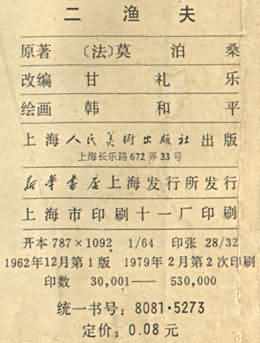 二 渔 夫
原著 (法)莫 泊 桑
改编 甘 礼 乐
绘画 韩 和 平
上海人民美術出版社出版
上海长乐路 672 弄 33 号
新华書店上海发行所发行
上海市印刷十一厂印刷
开本 787×1092 1/64 印张 28/32
1962年12月第1版 1979年2月第2次印刷
印数 30,001—— 530,000
统一书号: 8081·5273
定价: 0.08 元